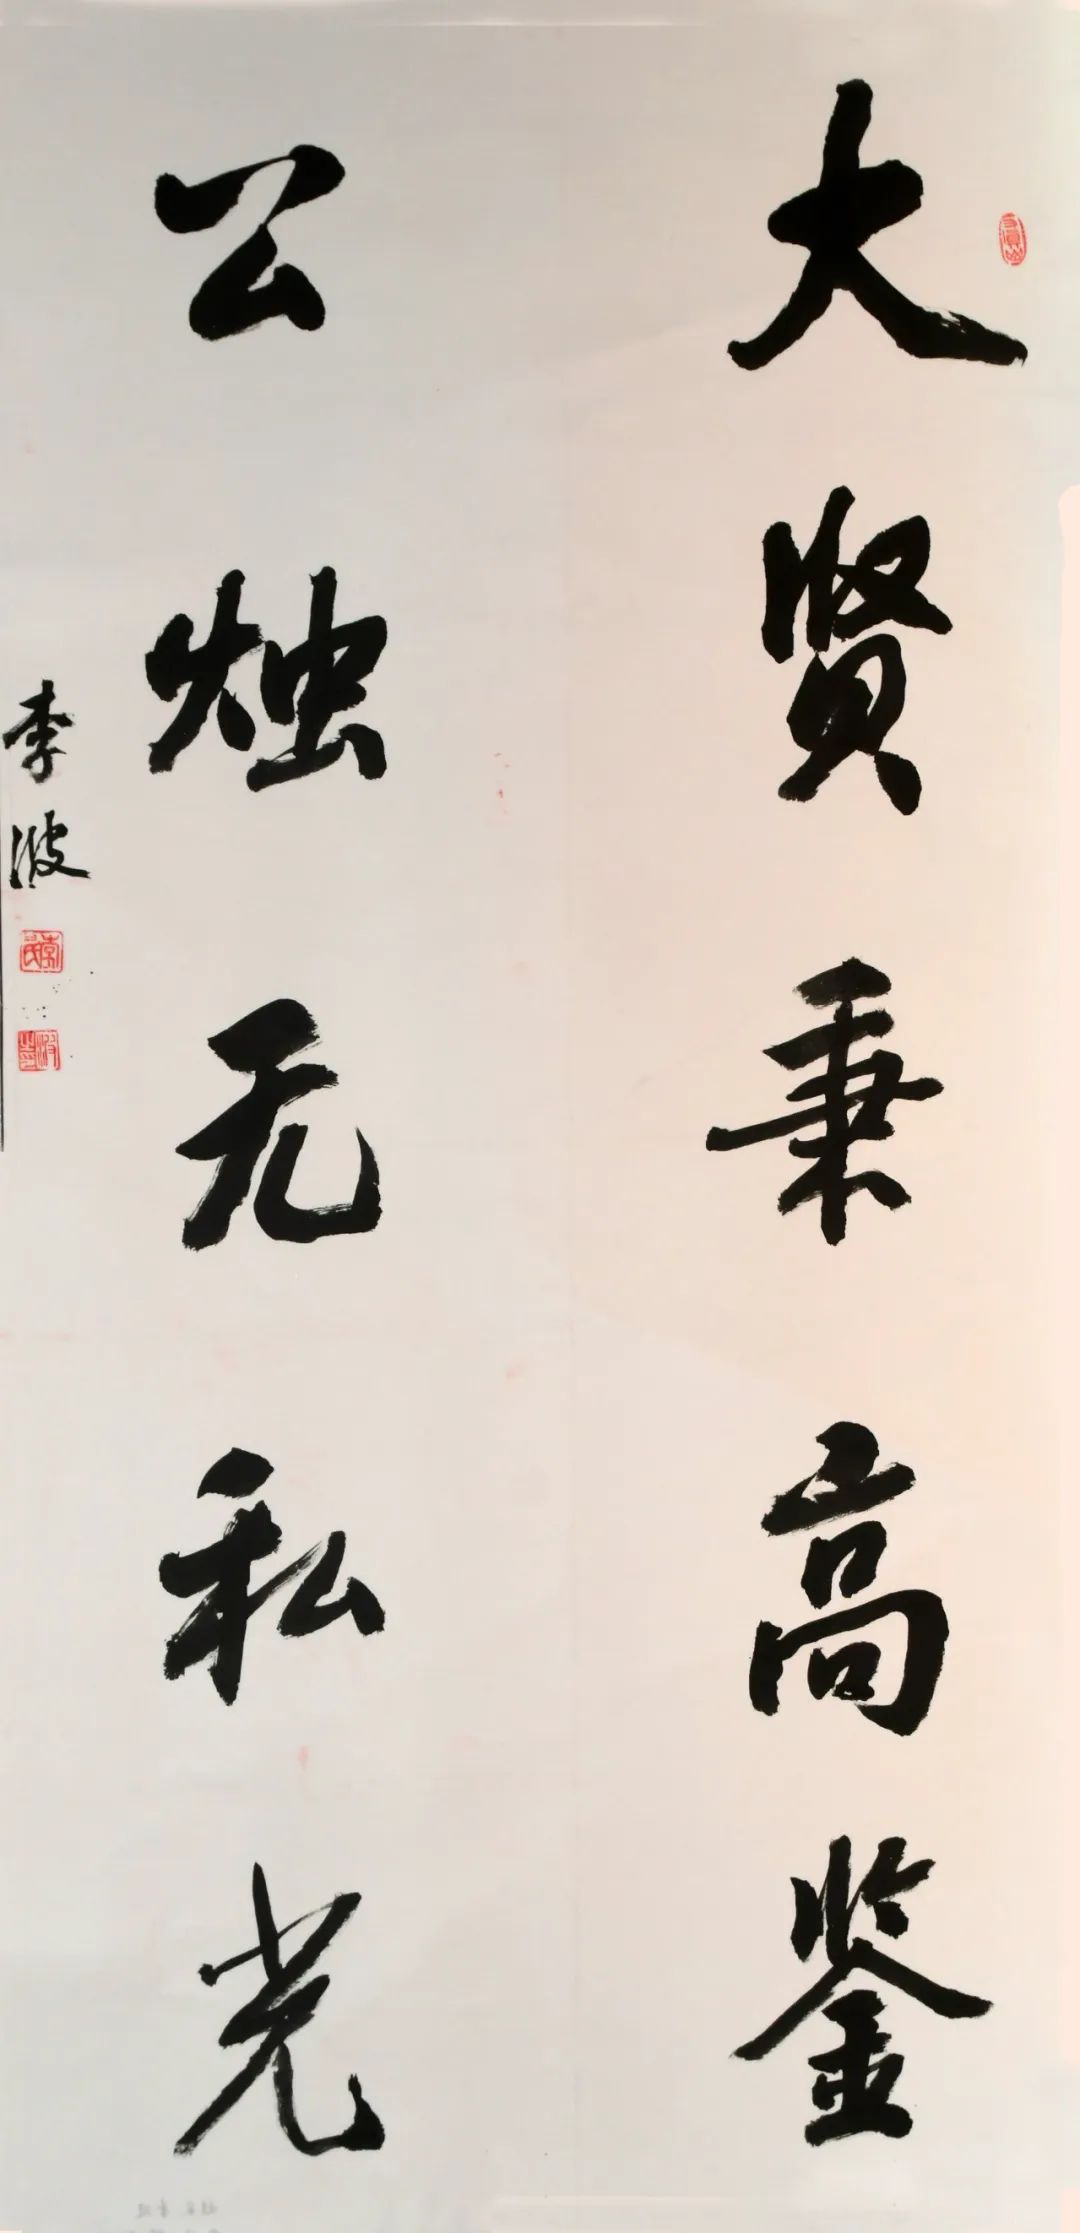 大贤秉高鉴
公烛无私光
李波